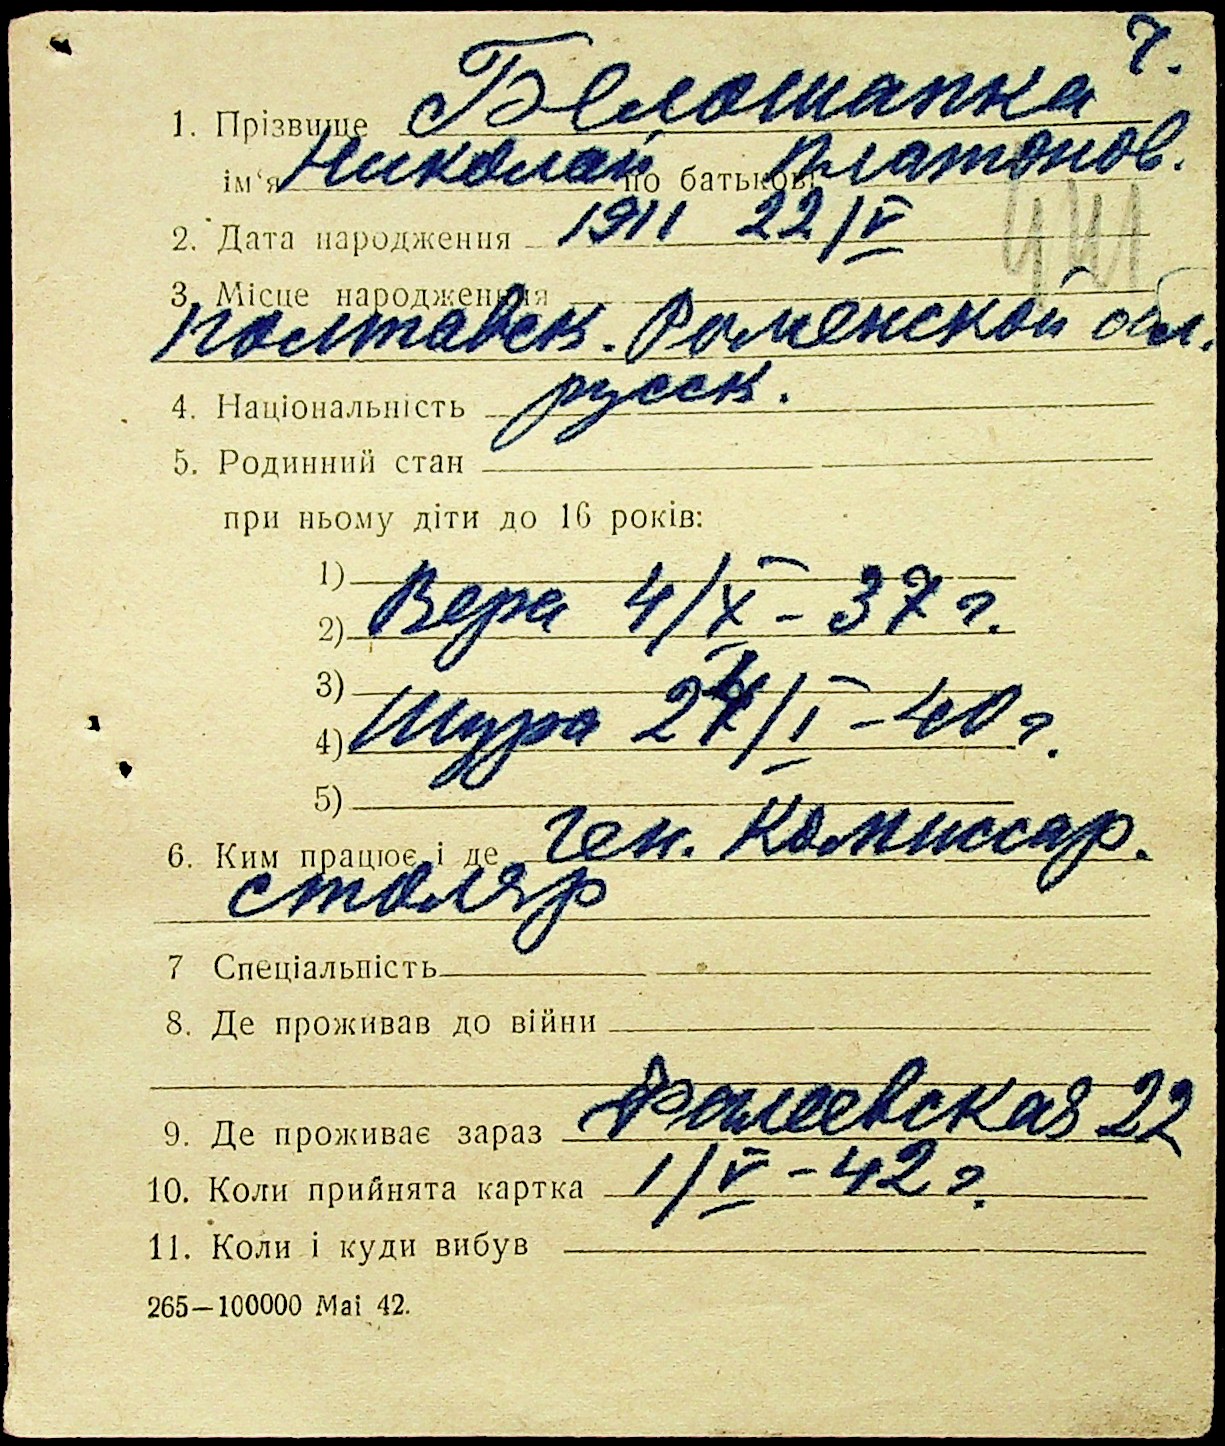 ч.
1. Прізвище Белошапка
ім'я Николай по батькові Платонов.
2. Дата народження 1911 22/V
441
3. Місце народження
Полтавск. Роменской обл.
4. Національність русск.
5. Родинний стан
при ньому діти до 16 років:
1)
2) Вера 4/X - 37 г.
3)
4) Шура 24/I - 40 г.
5)
6. Ким працює і де Ген. Комиссар.
столяр
7 Спеціальність
8. Де проживав до війни
9. Де проживає зараз Фалеевская 22
10. Коли прийнята картка 1/V - 42 г.
11. Коли і куди вибув
265—100000 Mai 42.